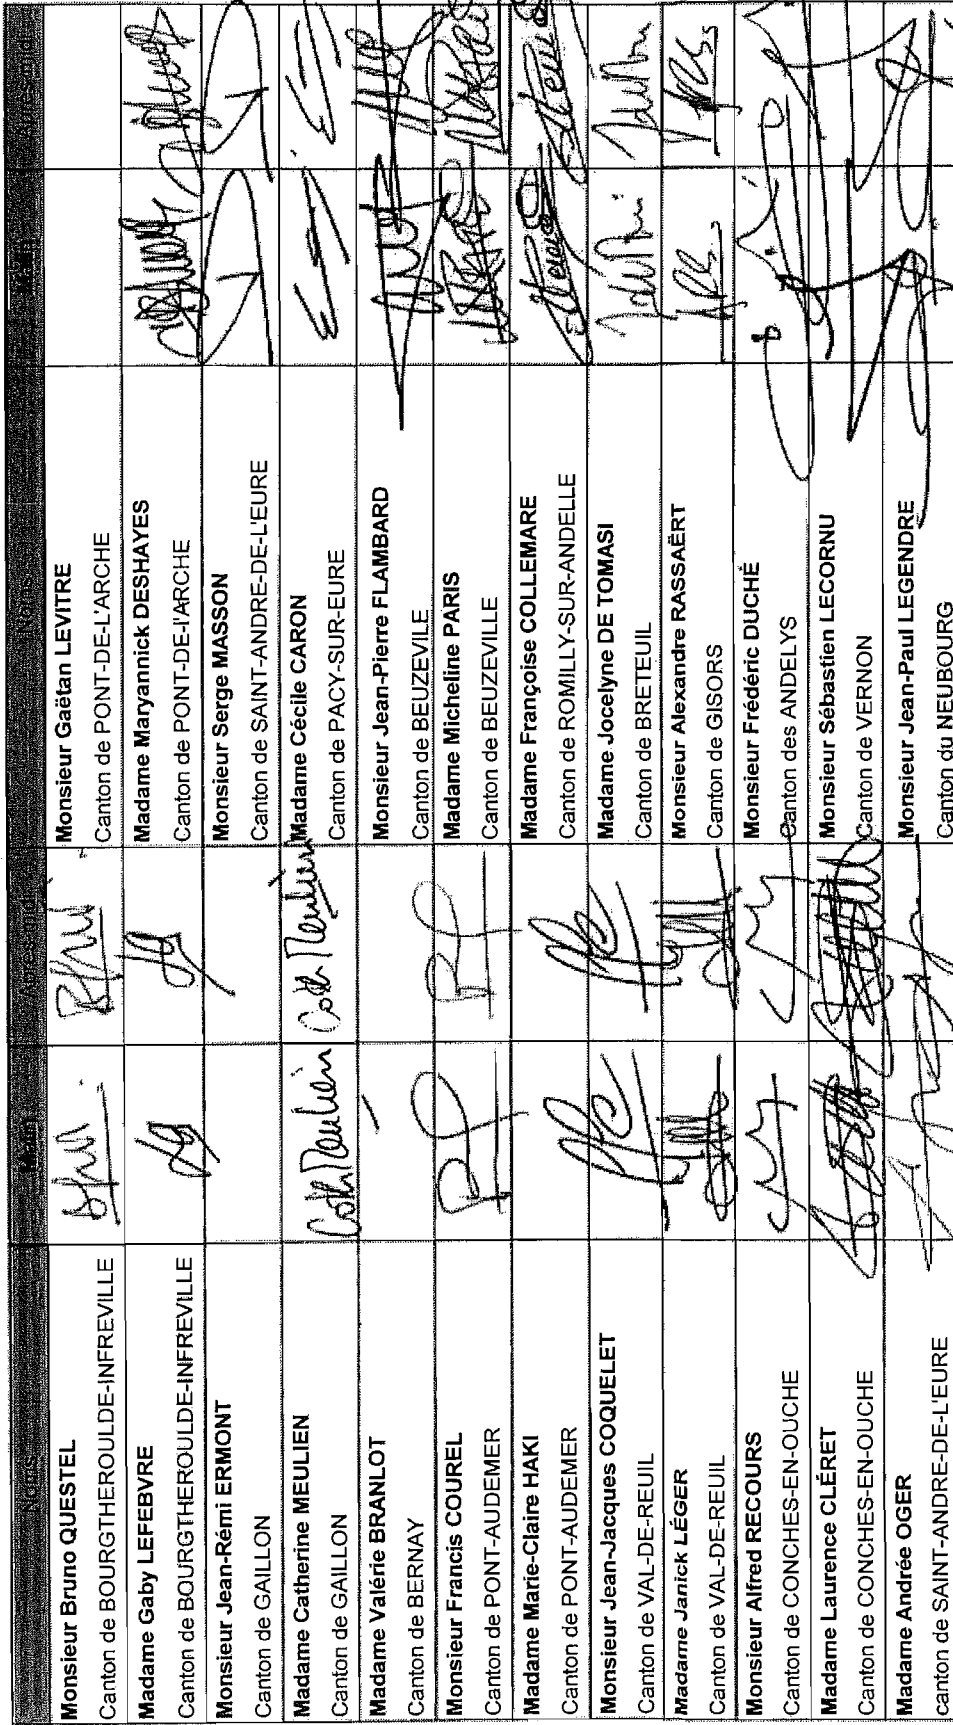 Noms Matin Après-midi Noms Matin Après-midi
Monsieur Bruno QUESTEL
Canton de BOURGTHEROULDE-INFREVILLE
Monsieur Gaëtan LEVITRE
Canton de PONT-DE-L'ARCHE
Madame Gaby LEFEBVRE
Canton de BOURGTHEROULDE-INFREVILLE
Madame Maryannick DESHAYES
Canton de PONT-DE-l'ARCHE
Monsieur Jean-Rémi ERMONT
Canton de GAILLON
Monsieur Serge MASSON
Canton de SAINT-ANDRE-DE-L'EURE
Madame Catherine MEULIEN
Canton de GAILLON
Cath Meulien
Cath Meulien
Madame Cécile CARON
Canton de PACY-SUR-EURE
Madame Valérie BRANLOT
Canton de BERNAY
Monsieur Jean-Pierre FLAMBARD
Canton de BEUZEVILE
Monsieur Francis COUREL
Canton de PONT-AUDEMER
Madame Micheline PARIS
Canton de BEUZEVILLE
Madame Marie-Claire HAKI
Canton de PONT-AUDEMER
Madame Françoise COLLEMARE
Canton de ROMILLY-SUR-ANDELLE
Monsieur Jean-Jacques COQUELET
Canton de VAL-DE-REUIL
Madame Jocelyne DE TOMASI
Canton de BRETEUIL
Madame Janick LÉGER
Canton de VAL-DE-REUIL
Monsieur Alexandre RASSAËRT
Canton de GISORS
Monsieur Alfred RECOURS
Canton de CONCHES-EN-OUCHE
Monsieur Frédéric DUCHÉ
Canton des ANDELYS
Madame Laurence CLÉRET
Canton de CONCHES-EN-OUCHE
Monsieur Sébastien LECORNU
Canton de VERNON
Madame Andrée OGER
canton de SAINT-ANDRE-DE-L'EURE
Monsieur Jean-Paul LEGENDRE
Canton du NEUBOURG